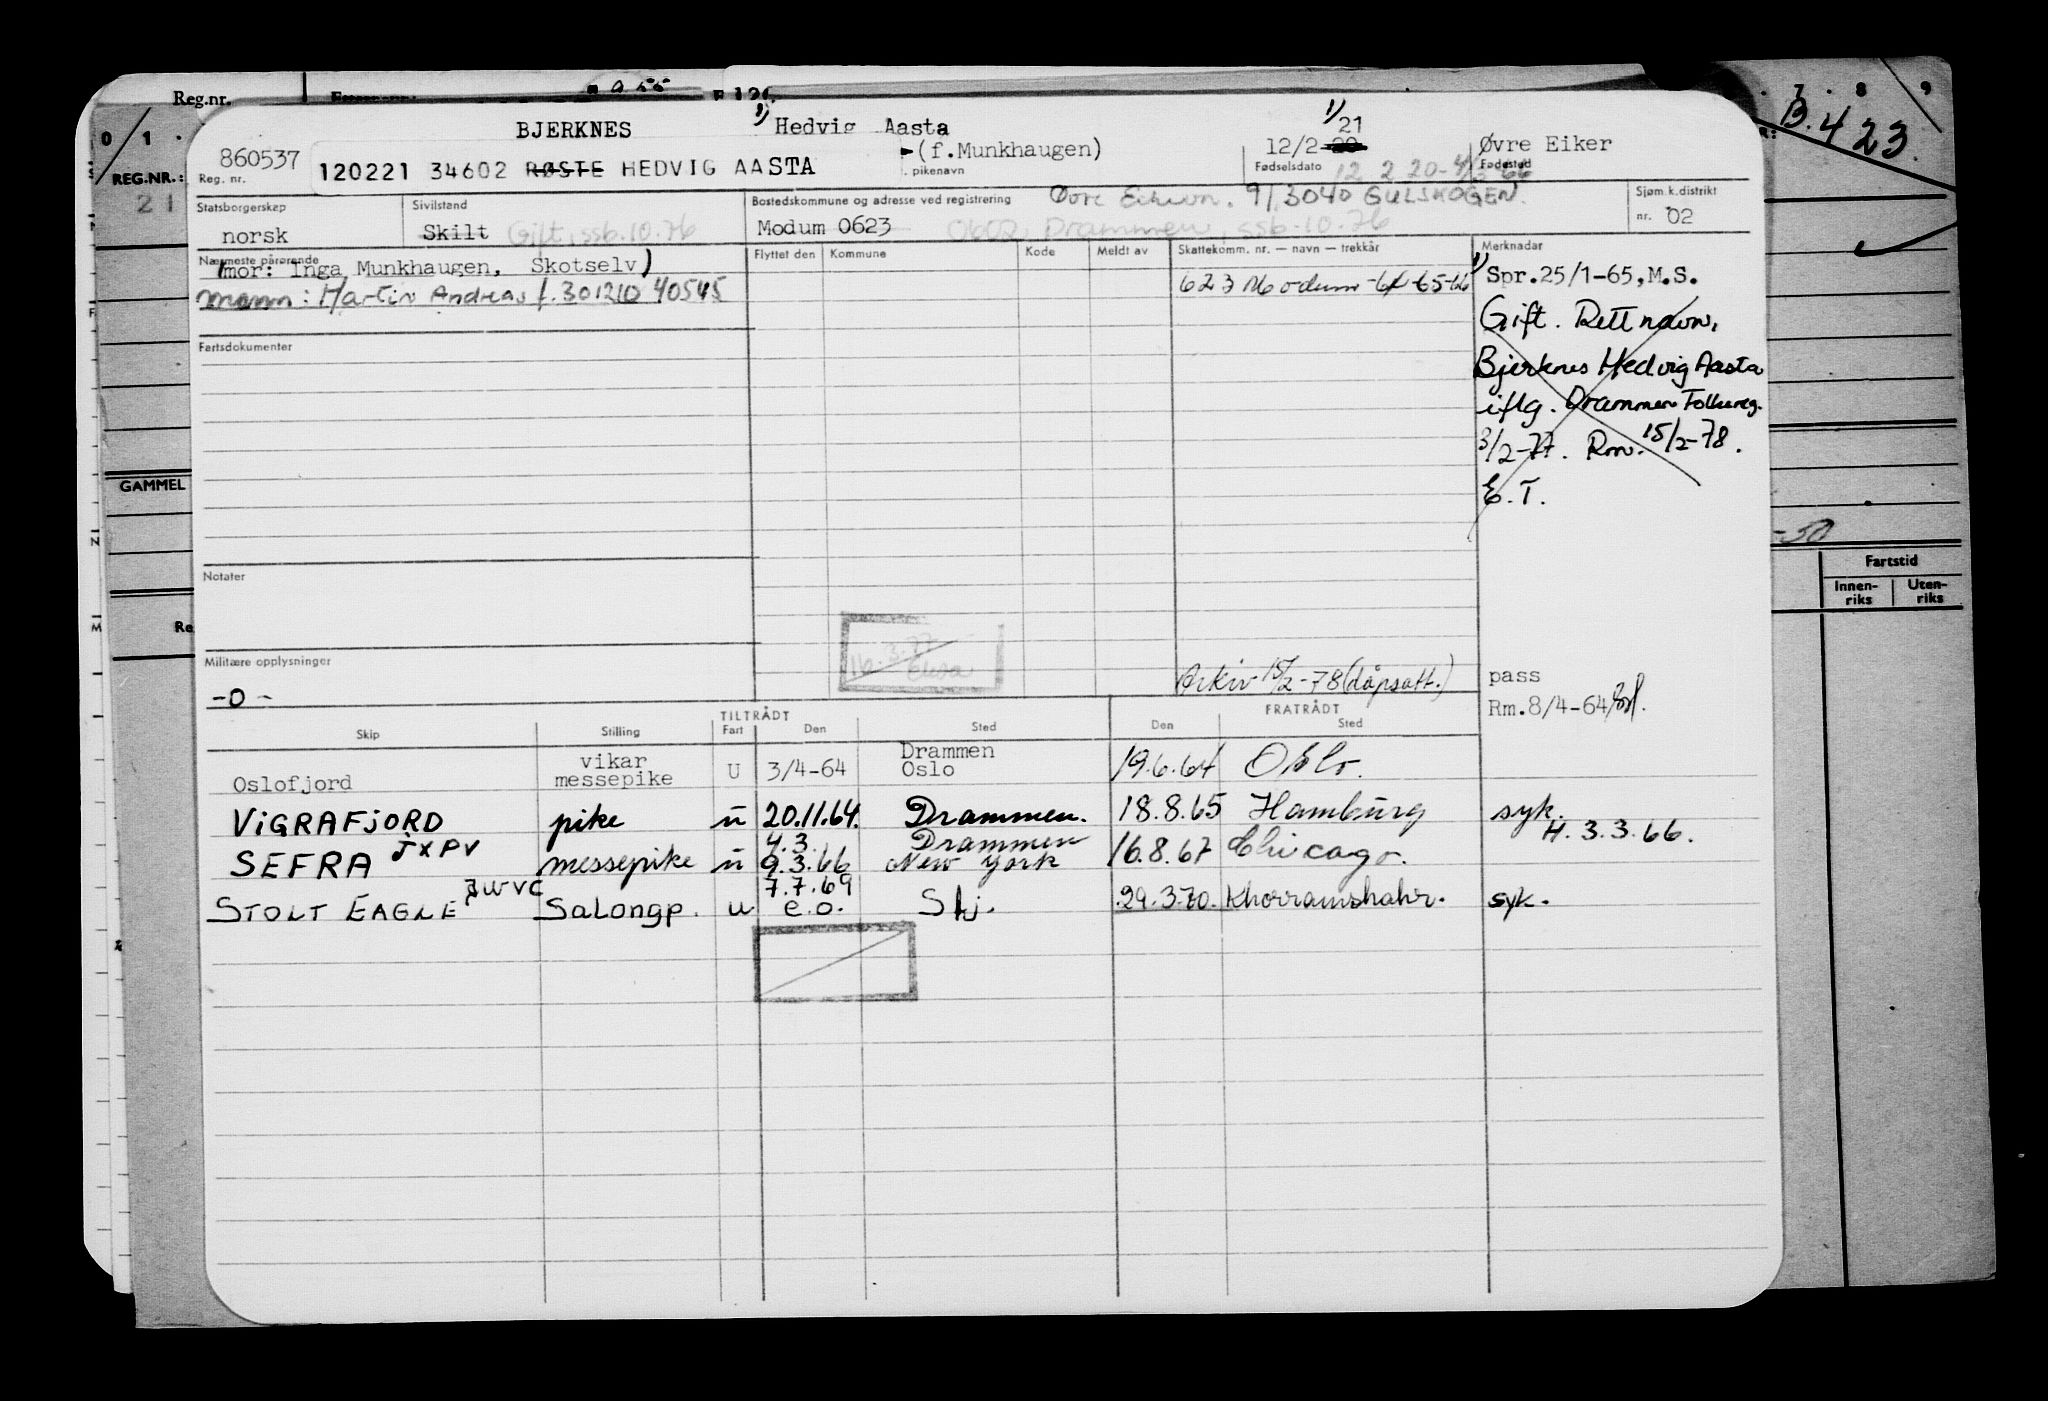 Reg.nr.
0 1 . 7 . 8 9
B. 423
REG.NR.:
21
1) 1)
BJERKNES Hedvig Aasta 21
860537 (f.Munkhaugen) 12/2-20 Øvre Eiker
Reg. nr. 120221 34602 RØSTE HEDVIG AASTA . pikenavn Fødselsdato Fødested
12 2 20-
Statsborgerskap Sivilstand Bostedskommune og adresse ved registrering Øvre Eikervn. 91 3040 GULSKOGEN. Sjøm.k.distrikt
norsk Skilt Gift, ssb. 10.76 Modum 0623 0602, Drammen, ssb-10.76 nr. 02
Nærmeste pårørende Flyttet den Kommune Kode Meldt av Skattekomm. nr. — navn — trekkår Merknader
(mor: Inga Munkhaugen, Skotselv) 623 Modum -64-65-66 1) Spr.25/1-65,M.S.
mann: Martin Andreas f. 301210 40545
Gift. Rett navn,
Fartsdokumenter
Bjerknes Hedvig Aasta
iflg. Drammen Folkereg.
3/2-77. Rm. 15/2-78.
GAMMEL
E. T.
-50
Fartstid
Innen-riks Uten-riks
Notater
16.3.77
Militære opplysninger Arkiv 15/2-78 (dåpsatt.) pass
-0- Rm.8/4-64
TILTRÅDT FRATRÅDT
Skip Stilling Fart Den Sted Den Sted
Oslofjord vikar messepike U 3/4-64 Drammen Oslo 19.6.64 Oslo.
VIGRAFJORD pike u 20.11.64. Drammen. 18.8.65 Hamburg syk.
H. 3.3.66.
4.3. Drammen
SEFRA JXPV messepike u 9.3.66 New York 16.8.67 Chicago.
7.7.69
STOLT EAGLE JWVC Salongp. u e.o. Skj. 29.3.70. Khorramshahr. syk.